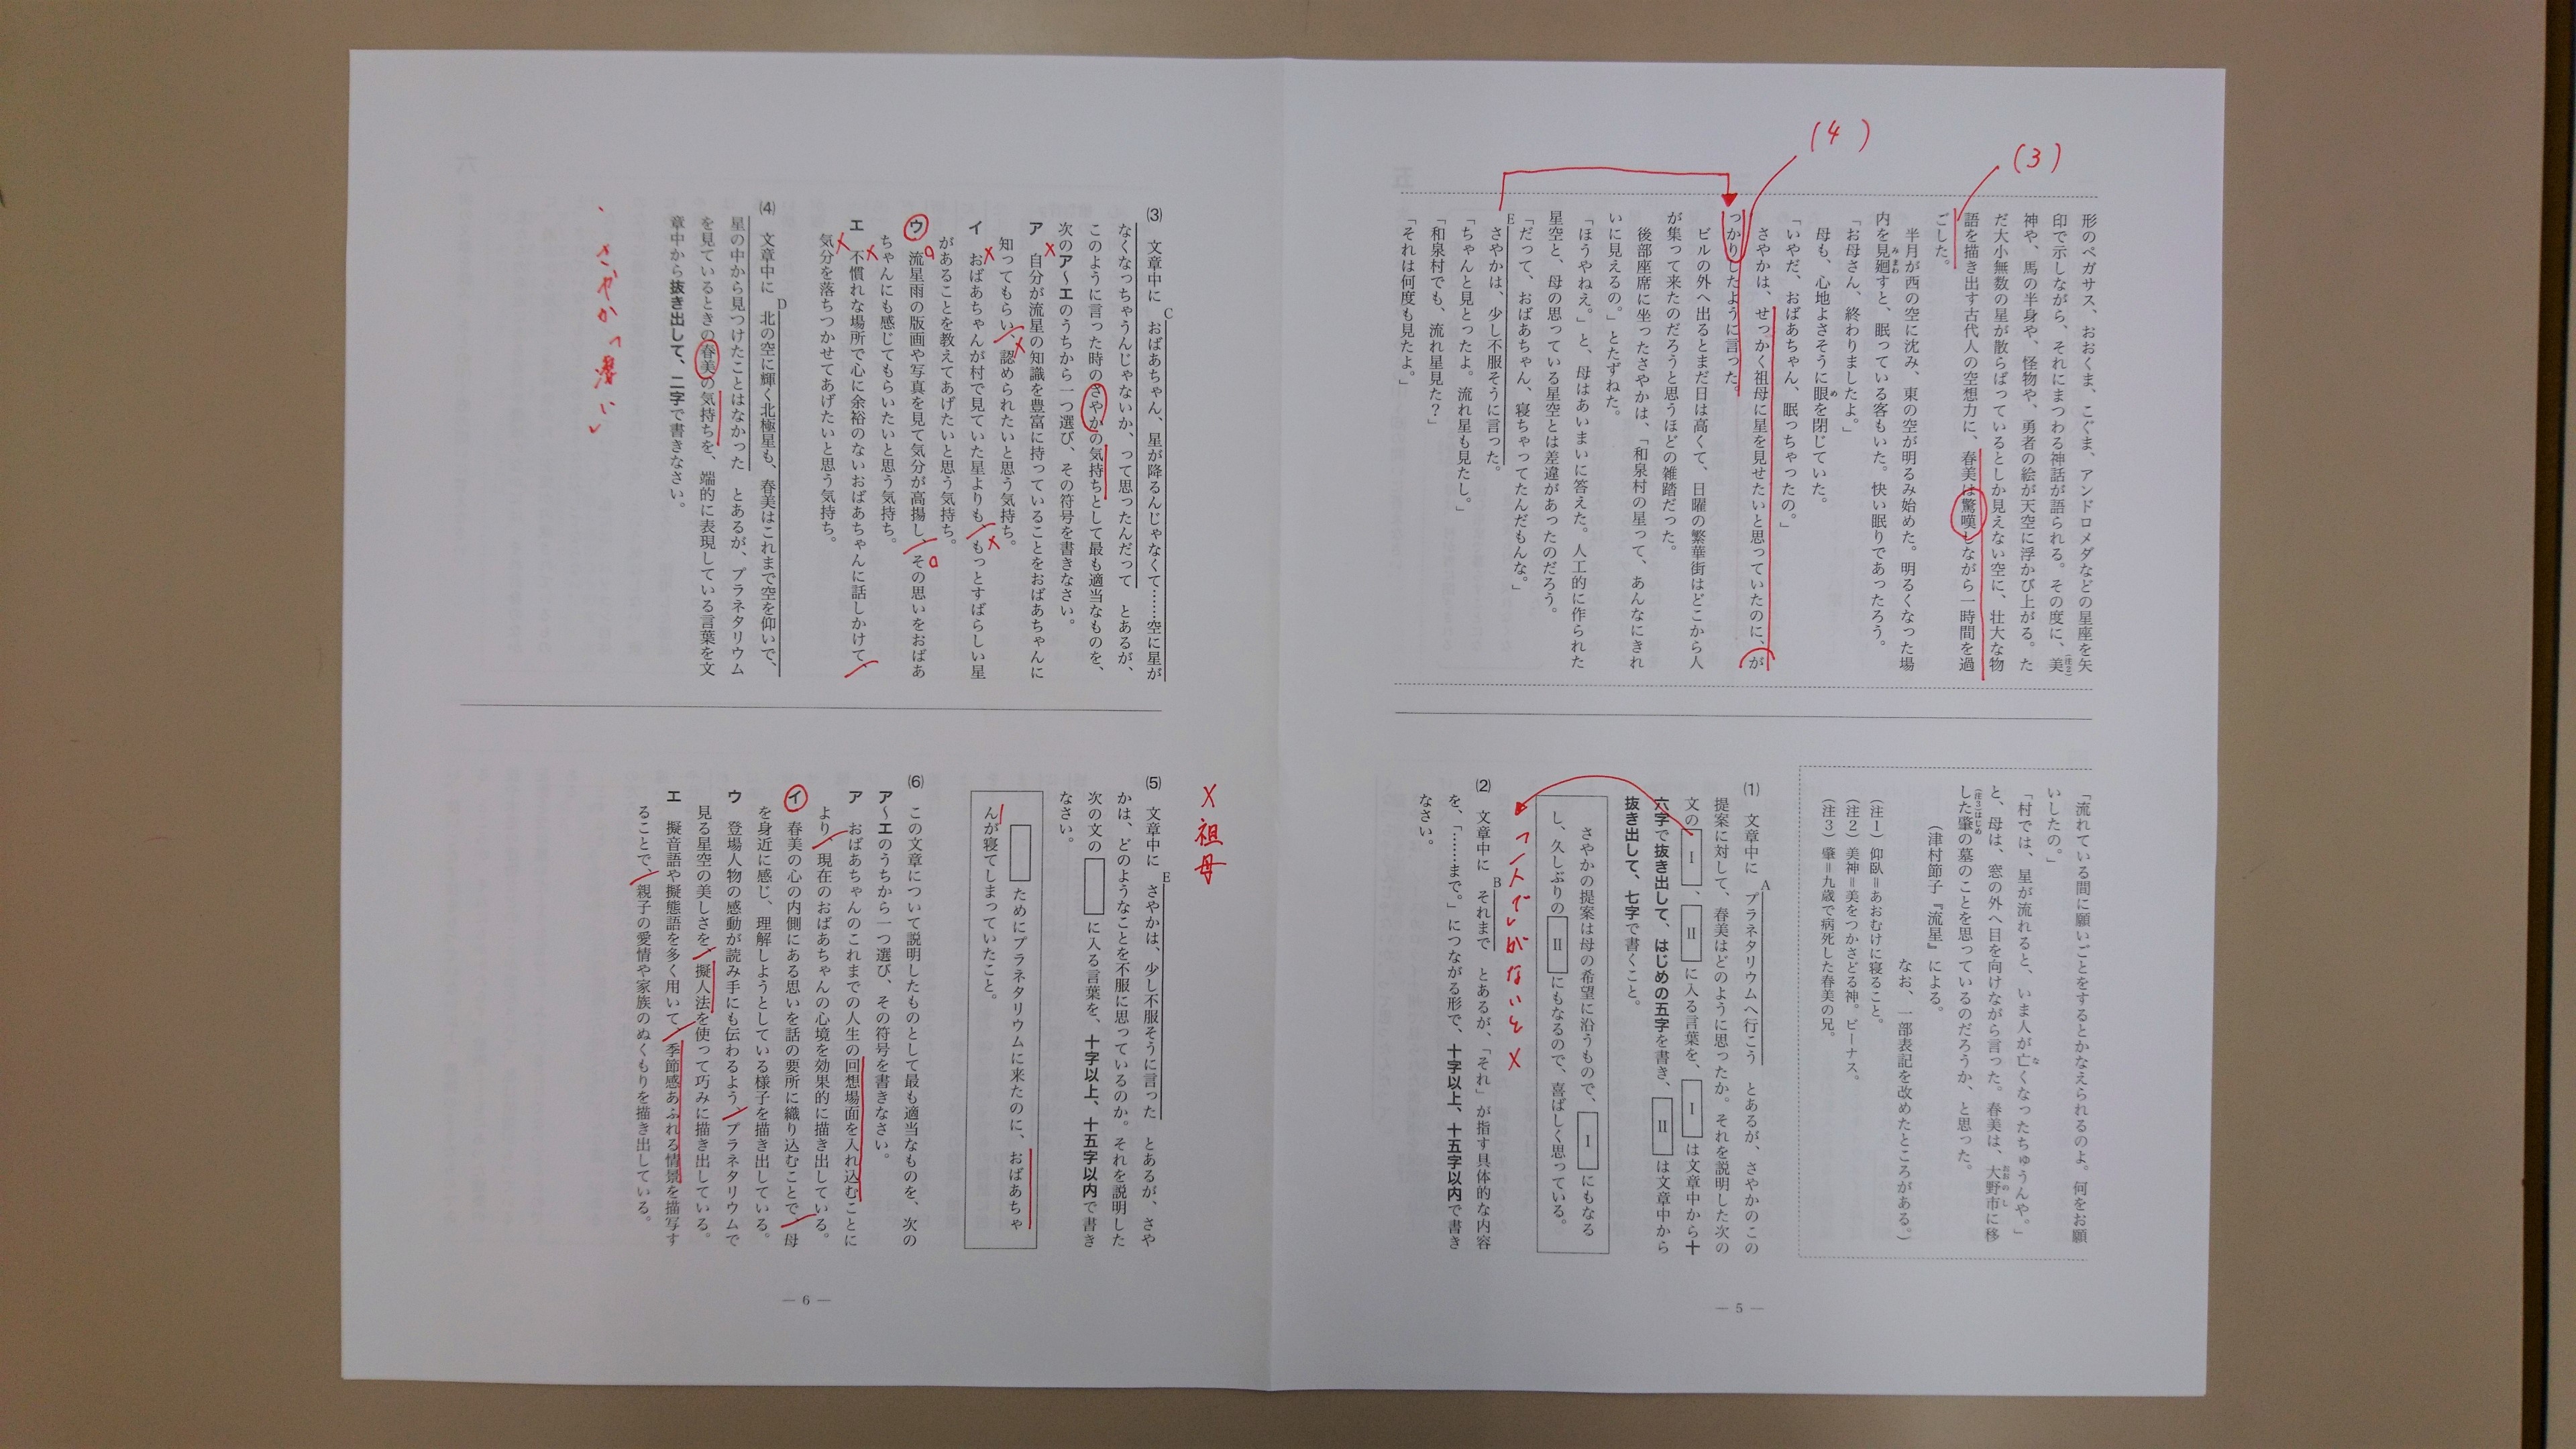 (3)
(4)
形のペガサス、おおくま、こぐま、アンドロメダなどの星座を矢
印で示しながら、それにまつわる神話が語られる。その度に、美(注2)
神や、馬の半身や、怪物や、勇者の絵が天空に浮かび上がる。た
だ大小無数の星が散らばっているとしか見えない空に、壮大な物
語を描き出す古代人の空想力に、春美は驚嘆しながら一時間を過
ごした。
半月が西の空に沈み、東の空が明るみ始めた。明るくなった場
内を見廻(みまわ)すと、眠っている客もいた。快い眠りであったろう。
「お母さん、終わりましたよ。」
母も、心地よさそうに眼(め)を閉じていた。
「いやだ、おばあちゃん、眠っちゃったの。」
さやかは、せっかく祖母に星を見せたいと思っていたのに、が
っかりしたように言った。
ビルの外へ出るとまだ日は高くて、日曜の繁華街はどこから人
が集って来たのだろうと思うほどの雑踏だった。
後部座席に坐ったさやかは、「和泉村の星って、あんなにきれ
いに見えるの。」とたずねた。
「ほうやねえ。」と、母はあいまいに答えた。人工的に作られた
星空と、母の思っている星空とは差違があったのだろう。
「だって、おばあちゃん、寝ちゃってたんだもんな。」
E さやかは、少し不服そうに言った。
「ちゃんと見とったよ。流れ星も見たし。」
「和泉村でも、流れ星見た?」
「それは何度も見たよ。」
「流れている間に願いごとをするとかなえられるのよ。何をお願
いしたの。」
「村では、星が流れると、いま人が亡(な)くなったちゅうんや。」
と、母は、窓の外へ目を向けながら言った。春美は、大野市(おおのし)に移
した肇(注3)(はじめ)の墓のことを思っているのだろうか、と思った。
(津村節子『流星』による。
なお、一部表記を改めたところがある。)
(注1) 仰臥=あおむけに寝ること。
(注2) 美神=美をつかさどる神。ビーナス。
(注3) 肇=九歳で病死した春美の兄。
(1) 文章中に A プラネタリウムへ行こう とあるが、さやかのこの
提案に対して、春美はどのように思ったか。それを説明した次の
文の Ⅰ 、 Ⅱ に入る言葉を、 Ⅰ は文章中から十
六字で抜き出して、はじめの五字を書き、 Ⅱ は文章中から
抜き出して、七字で書くこと。
さやかの提案は母の希望に沿うもので、 Ⅰ にもなる
し、久しぶりの Ⅱ にもなるので、喜ばしく思っている。
(2) 文章中に B それまで とあるが、「それ」が指す具体的な内容
を、「……まで。」につながる形で、十字以上、十五字以内で書き
なさい。
— 5 —
(3) 文章中に C おばあちゃん、星が降るんじゃなくて……空に星が
なくなっちゃうんじゃないか、って思ったんだって とあるが、
このように言った時のさやかの気持ちとして最も適当なものを、
次のア〜エのうちから一つ選び、その符号を書きなさい。
ア 自分が流星の知識を豊富に持っていることをおばあちゃんに
知ってもらい、認められたいと思う気持ち。
イ おばあちゃんが村で見ていた星よりも、もっとすばらしい星
があることを教えてあげたいと思う気持ち。
ウ 流星雨の版画や写真を見て気分が高揚し、その思いをおばあ
ちゃんにも感じてもらいたいと思う気持ち。
エ 不慣れな場所で心に余裕のないおばあちゃんに話しかけて、
気分を落ちつかせてあげたいと思う気持ち。
(4) 文章中に D 北の空に輝く北極星も、春美はこれまで空を仰いで、
星の中から見つけたことはなかった とあるが、プラネタリウム
を見ているときの春美の気持ちを、端的に表現している言葉を文
章中から抜き出して、二字で書きなさい。
× 祖母
(5) 文章中に E さやかは、少し不服そうに言った とあるが、さや
かは、どのようなことを不服に思っているのか。それを説明した
次の文の に入る言葉を、十字以上、十五字以内で書き
なさい。
ためにプラネタリウムに来たのに、おばあちゃ
んが寝てしまっていたこと。
(6) この文章について説明したものとして最も適当なものを、次の
ア〜エのうちから一つ選び、その符号を書きなさい。
ア おばあちゃんのこれまでの人生の回想場面を入れ込むことに
より、現在のおばあちゃんの心境を効果的に描き出している。
イ 春美の心の内側にある思いを話の要所に織り込むことで、母
を身近に感じ、理解しようとしている様子を描き出している。
ウ 登場人物の感動が読み手にも伝わるよう、プラネタリウムで
見る星空の美しさを、擬人法を使って巧みに描き出している。
エ 擬音語や擬態語を多く用いて、季節感あふれる情景を描写す
ることで、親子の愛情や家族のぬくもりを描き出している。
— 6 —